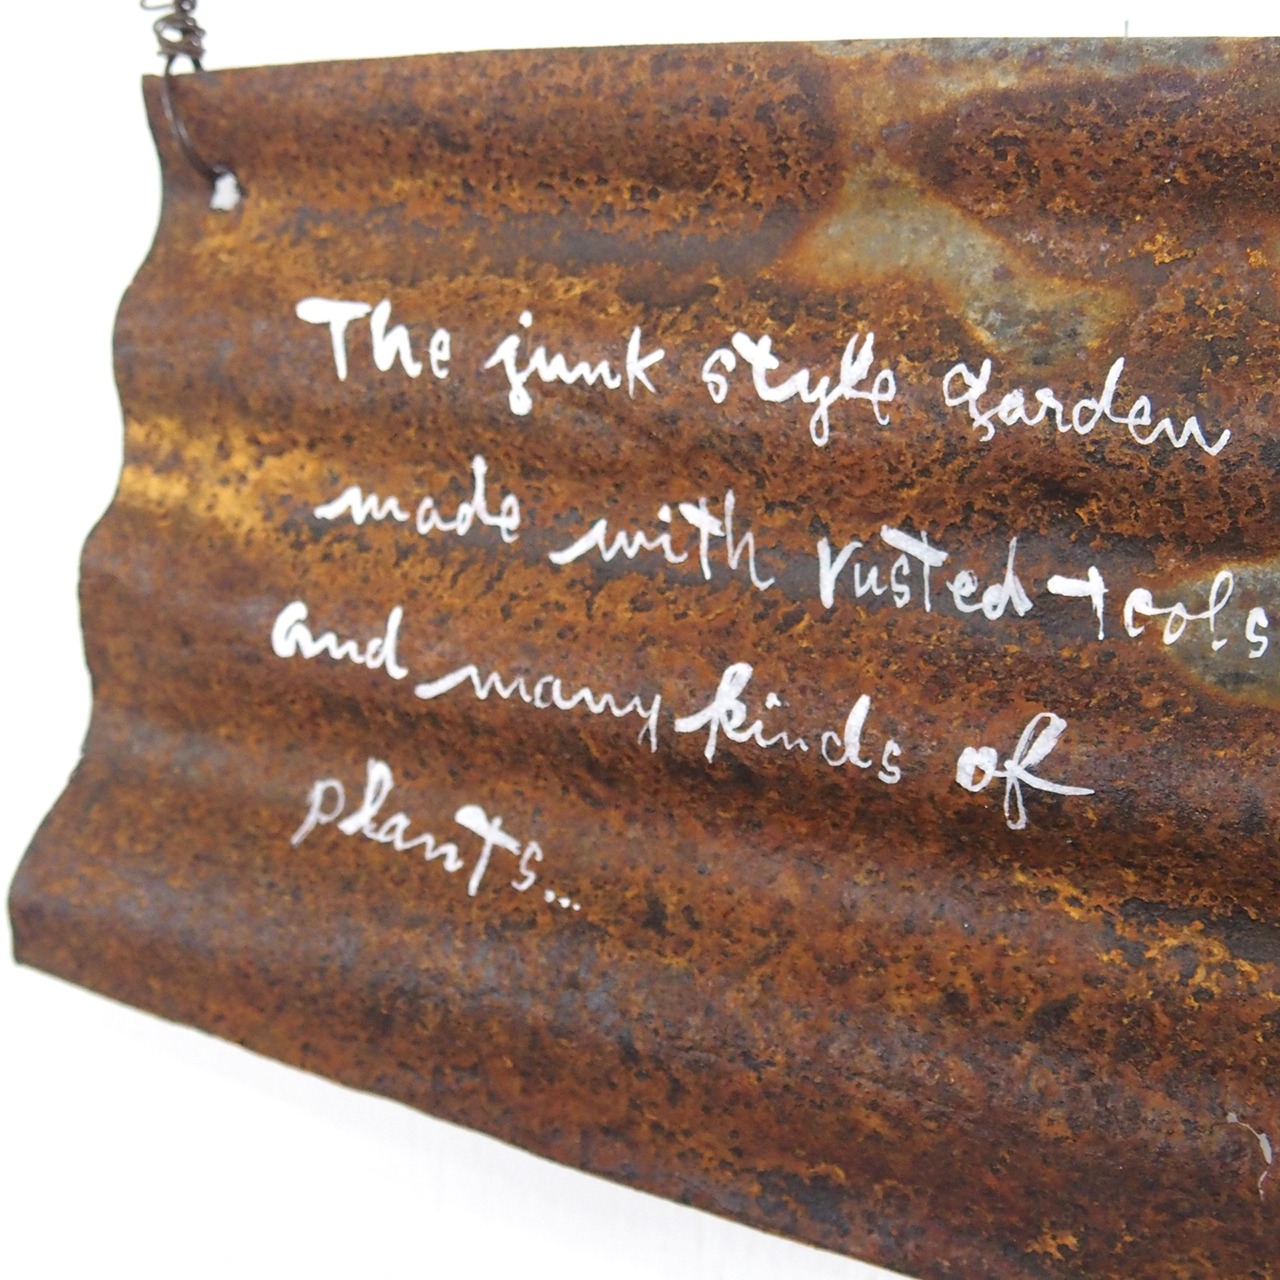 The junk style garden
made with rusted tools
and many kinds of
plants...